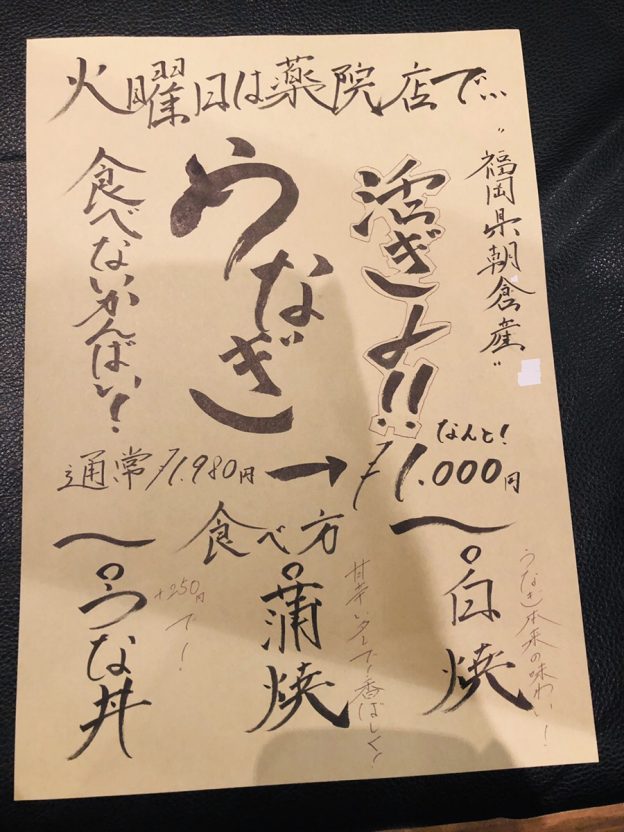 火曜日は薬院店で…
"福岡県朝倉産"
活きよ!!
うなぎ
食べないかんばい!
なんと!
通常 1.980円 → 1.000円
〜食べ方〜
○白焼
うなぎ本来の味わい!
○蒲焼
甘辛いタレで香ばしく!
○うな丼
+250円で!